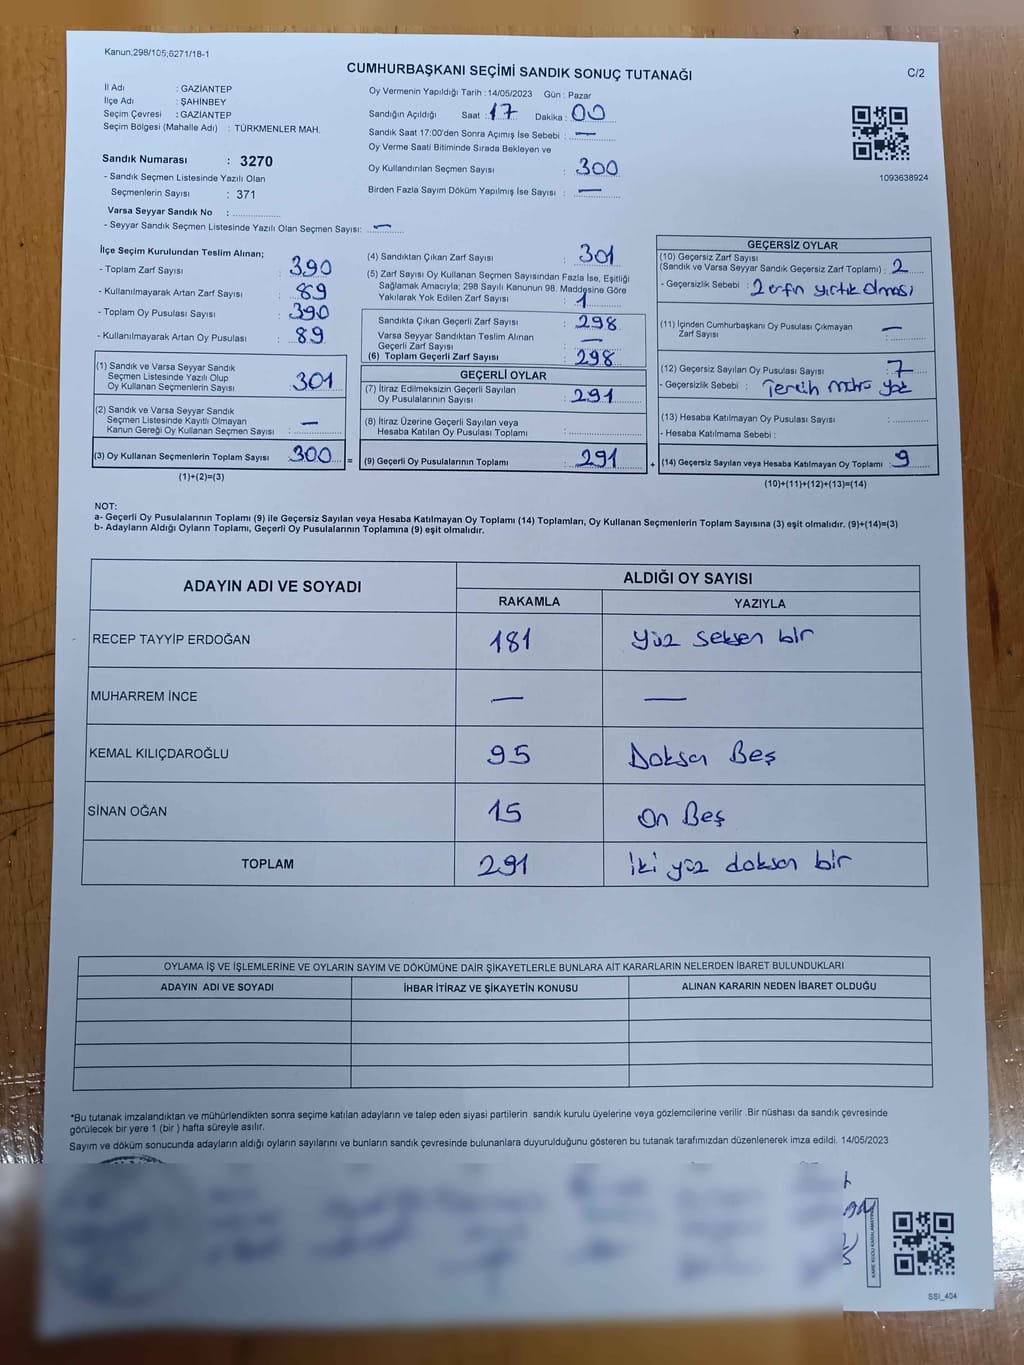 Kanun;298/105;6271/18-1
CUMHURBAŞKANI SEÇİMİ SANDIK SONUÇ TUTANAĞI
C/2
İl Adı : GAZİANTEP
İlçe Adı : ŞAHİNBEY
Seçim Çevresi : GAZİANTEP
Seçim Bölgesi (Mahalle Adı) : TÜRKMENLER MAH.
Sandık Numarası : 3270
- Sandık Seçmen Listesinde Yazılı Olan
Seçmenlerin Sayısı : 371
Varsa Seyyar Sandık No :
- Seyyar Sandık Seçmen Listesinde Yazılı Olan Seçmen Sayısı: —
Oy Vermenin Yapıldığı Tarih :14/05/2023 Gün : Pazar
Sandığın Açıldığı Saat : 17 Dakika : 00
Sandık Saat 17:00'den Sonra Açımış İse Sebebi : —
Oy Verme Saati Bitiminde Sırada Bekleyen ve
Oy Kullandırılan Seçmen Sayısı : 300
Birden Fazla Sayım Döküm Yapılmış İse Sayısı : —
1093638924
İlçe Seçim Kurulundan Teslim Alınan;
- Toplam Zarf Sayısı : 390
- Kullanılmayarak Artan Zarf Sayısı : 89
- Toplam Oy Pusulası Sayısı : 390
- Kullanılmayarak Artan Oy Pusulası : 89
(1) Sandık ve Varsa Seyyar Sandık
Seçmen Listesinde Yazılı Olup
Oy Kullanan Seçmenlerin Sayısı : 301
(2) Sandık ve Varsa Seyyar Sandık
Seçmen Listesinde Kayıtlı Olmayan
Kanun Gereği Oy Kullanan Seçmen Sayısı : —
(3) Oy Kullanan Seçmenlerin Toplam Sayısı : 300 =
(1)+(2)=(3)
(4) Sandıktan Çıkan Zarf Sayısı : 301
(5) Zarf Sayısı Oy Kullanan Seçmen Sayısından Fazla İse, Eşitliği
Sağlamak Amacıyla; 298 Sayılı Kanunun 98. Maddesine Göre
Yakılarak Yok Edilen Zarf Sayısı : 1
Sandıkta Çıkan Geçerli Zarf Sayısı : 298
Varsa Seyyar Sandıktan Teslim Alınan
Geçerli Zarf Sayısı : —
(6) Toplam Geçerli Zarf Sayısı : 298
GEÇERLİ OYLAR
(7) İtiraz Edilmeksizin Geçerli Sayılan
Oy Pusulalarının Sayısı : 291
(8) İtiraz Üzerine Geçerli Sayılan veya
Hesaba Katılan Oy Pusulası Toplamı :
(9) Geçerli Oy Pusulalarının Toplamı : 291 +
GEÇERSİZ OYLAR
(10) Geçersiz Zarf Sayısı
(Sandık ve Varsa Seyyar Sandık Geçersiz Zarf Toplamı) : 2
- Geçersizlik Sebebi : 2 yırtık olması
(11) İçinden Cumhurbaşkanı Oy Pusulası Çıkmayan
Zarf Sayısı : —
(12) Geçersiz Sayılan Oy Pusulası Sayısı : 7
- Geçersizlik Sebebi : Tercih yok
(13) Hesaba Katılmayan Oy Pusulası Sayısı :
- Hesaba Katılmama Sebebi :
(14) Geçersiz Sayılan veya Hesaba Katılmayan Oy Toplamı : 9
(10)+(11)+(12)+(13)=(14)
NOT:
a- Geçerli Oy Pusulalarının Toplamı (9) ile Geçersiz Sayılan veya Hesaba Katılmayan Oy Toplamı (14) Toplamları, Oy Kullanan Seçmenlerin Toplam Sayısına (3) eşit olmalıdır. (9)+(14)=(3)
b- Adayların Aldığı Oyların Toplamı, Geçerli Oy Pusulalarının Toplamına (9) eşit olmalıdır.
ADAYIN ADI VE SOYADI ALDIĞI OY SAYISI
RAKAMLA YAZIYLA
RECEP TAYYİP ERDOĞAN 181 Yüz Seksen bir
MUHARREM İNCE — —
KEMAL KILIÇDAROĞLU 95 Doksan Beş
SİNAN OĞAN 15 On Beş
TOPLAM 291 iki yüz doksan bir
OYLAMA İŞ VE İŞLEMLERİNE VE OYLARIN SAYIM VE DÖKÜMÜNE DAİR ŞİKAYETLERLE BUNLARA AİT KARARLARIN NELERDEN İBARET BULUNDUKLARI
ADAYIN ADI VE SOYADI İHBAR İTİRAZ VE ŞİKAYETİN KONUSU ALINAN KARARIN NEDEN İBARET OLDUĞU
*Bu tutanak imzalandıktan ve mühürlendikten sonra seçime katılan adayların ve talep eden siyasi partilerin sandık kurulu üyelerine veya gözlemcilerine verilir .Bir nüshası da sandık çevresinde
görülecek bir yere 1 (bir ) hafta süreyle asılır.
Sayım ve döküm sonucunda adayların aldığı oyların sayılarını ve bunların sandık çevresinde bulunanlara duyurulduğunu gösteren bu tutanak tarafımızdan düzenlenerek imza edildi. 14/05/2023
KARE KODU KARALAMAYINIZ
SSI_404